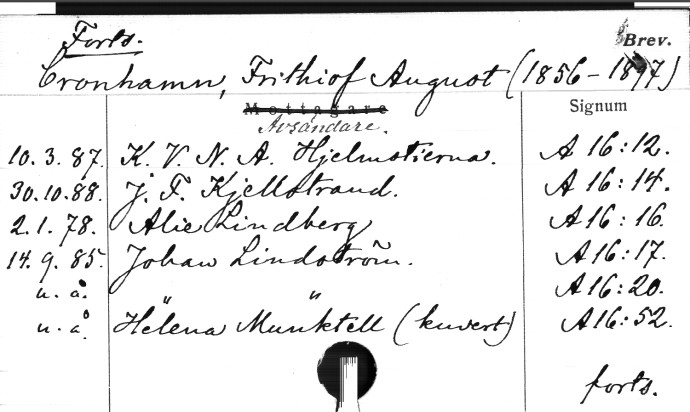 Forts.
Brev.
Cronhamn, Frithiof August (1856-1897)
Mottagare
Avsändare.
Signum
10.3.87. K. V. N. A. Hjelmstierna. A 16:12.
30.10.88. J. F. Kjellstrand. A 16:14.
2.1.78. Alie Lindberg A 16:16.
14.9.85. Johan Lindström. A 16:17.
u.å. " " A 16:20.
u.å. Helena Munktell (kuvert) A 16:52.
forts.